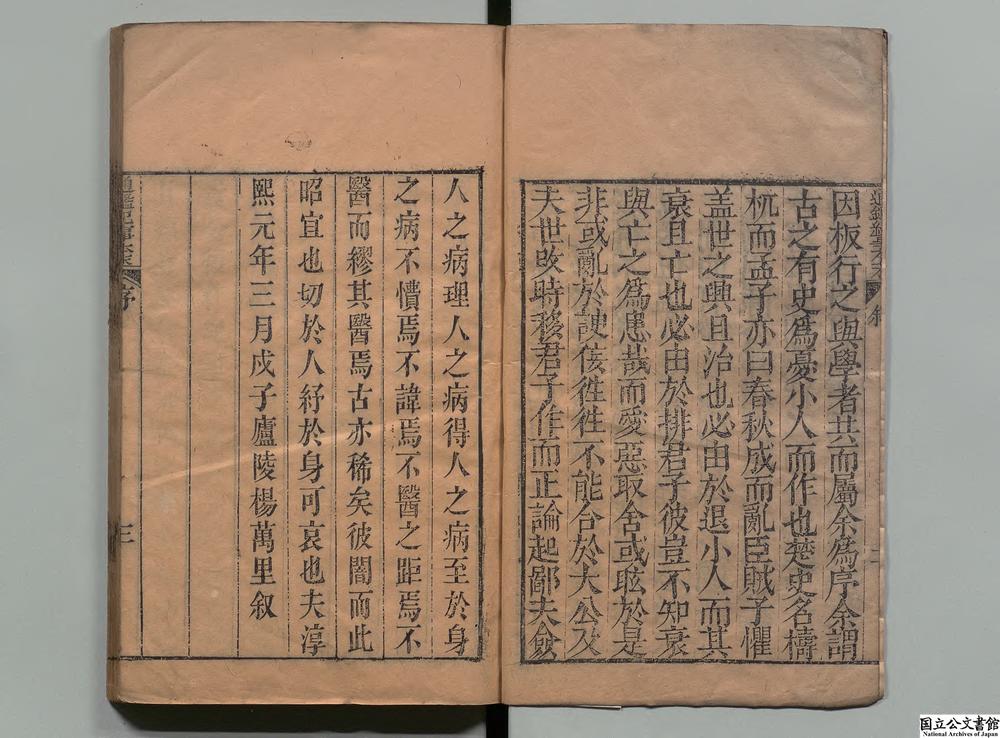 因板行之與學者共而屬余爲序余謂
古之有史爲憂小人而作也楚史名檮
杌而孟子亦曰春秋成而亂臣賊子懼
盖世之興且治也必由於退小人而其
衰且亡也必由於排君子彼豈不知衰
與亡之爲患哉而愛惡取舍或昡於是
非或亂於䛕佞徃徃不能合於大公及
夫世改時移君子作而正論起鄙夫僉
叙
二
人之病理人之病得人之病至於身
之病不憒焉不諱焉不醫之距焉不
醫而繆其醫焉古亦稀矣彼闇而此
昭宜也切於人紓於身可哀也夫淳
熙元年三月戊子廬陵楊萬里叙
序
三
国立公文書館
National Archives of Japan